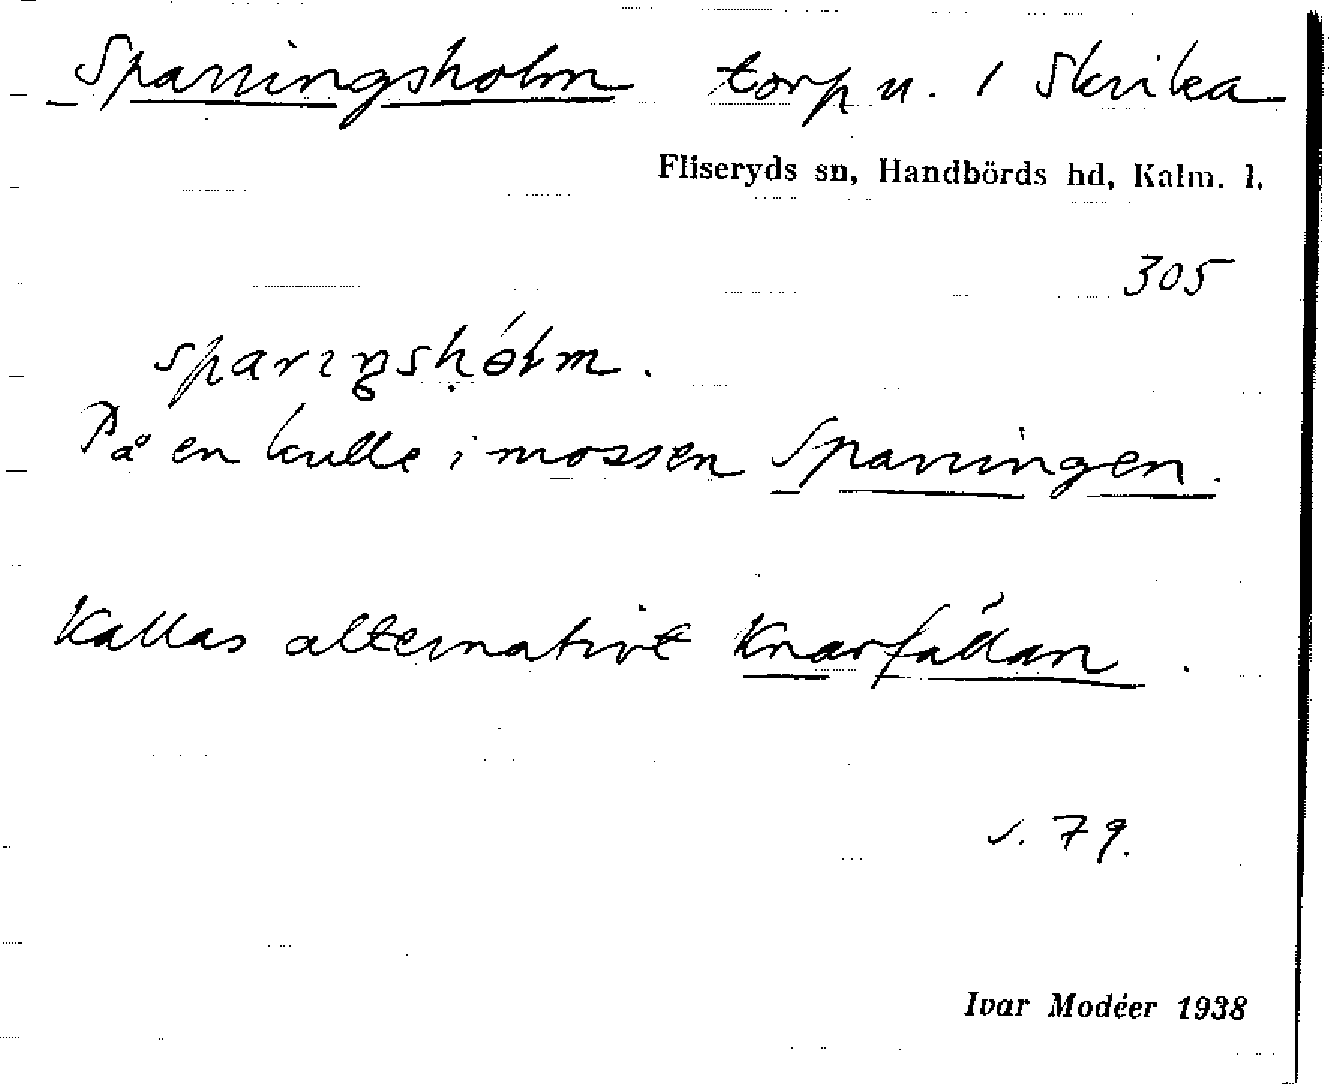 Sparringsholm torp u. 1 Skrika
Fliseryds sn, Handbörds hd, Kalm. l.
305
På en kulle i mossen Sparringen.
Kallas alternativt Knarrfällan.
s. 79.
Ivar Modéer 1938